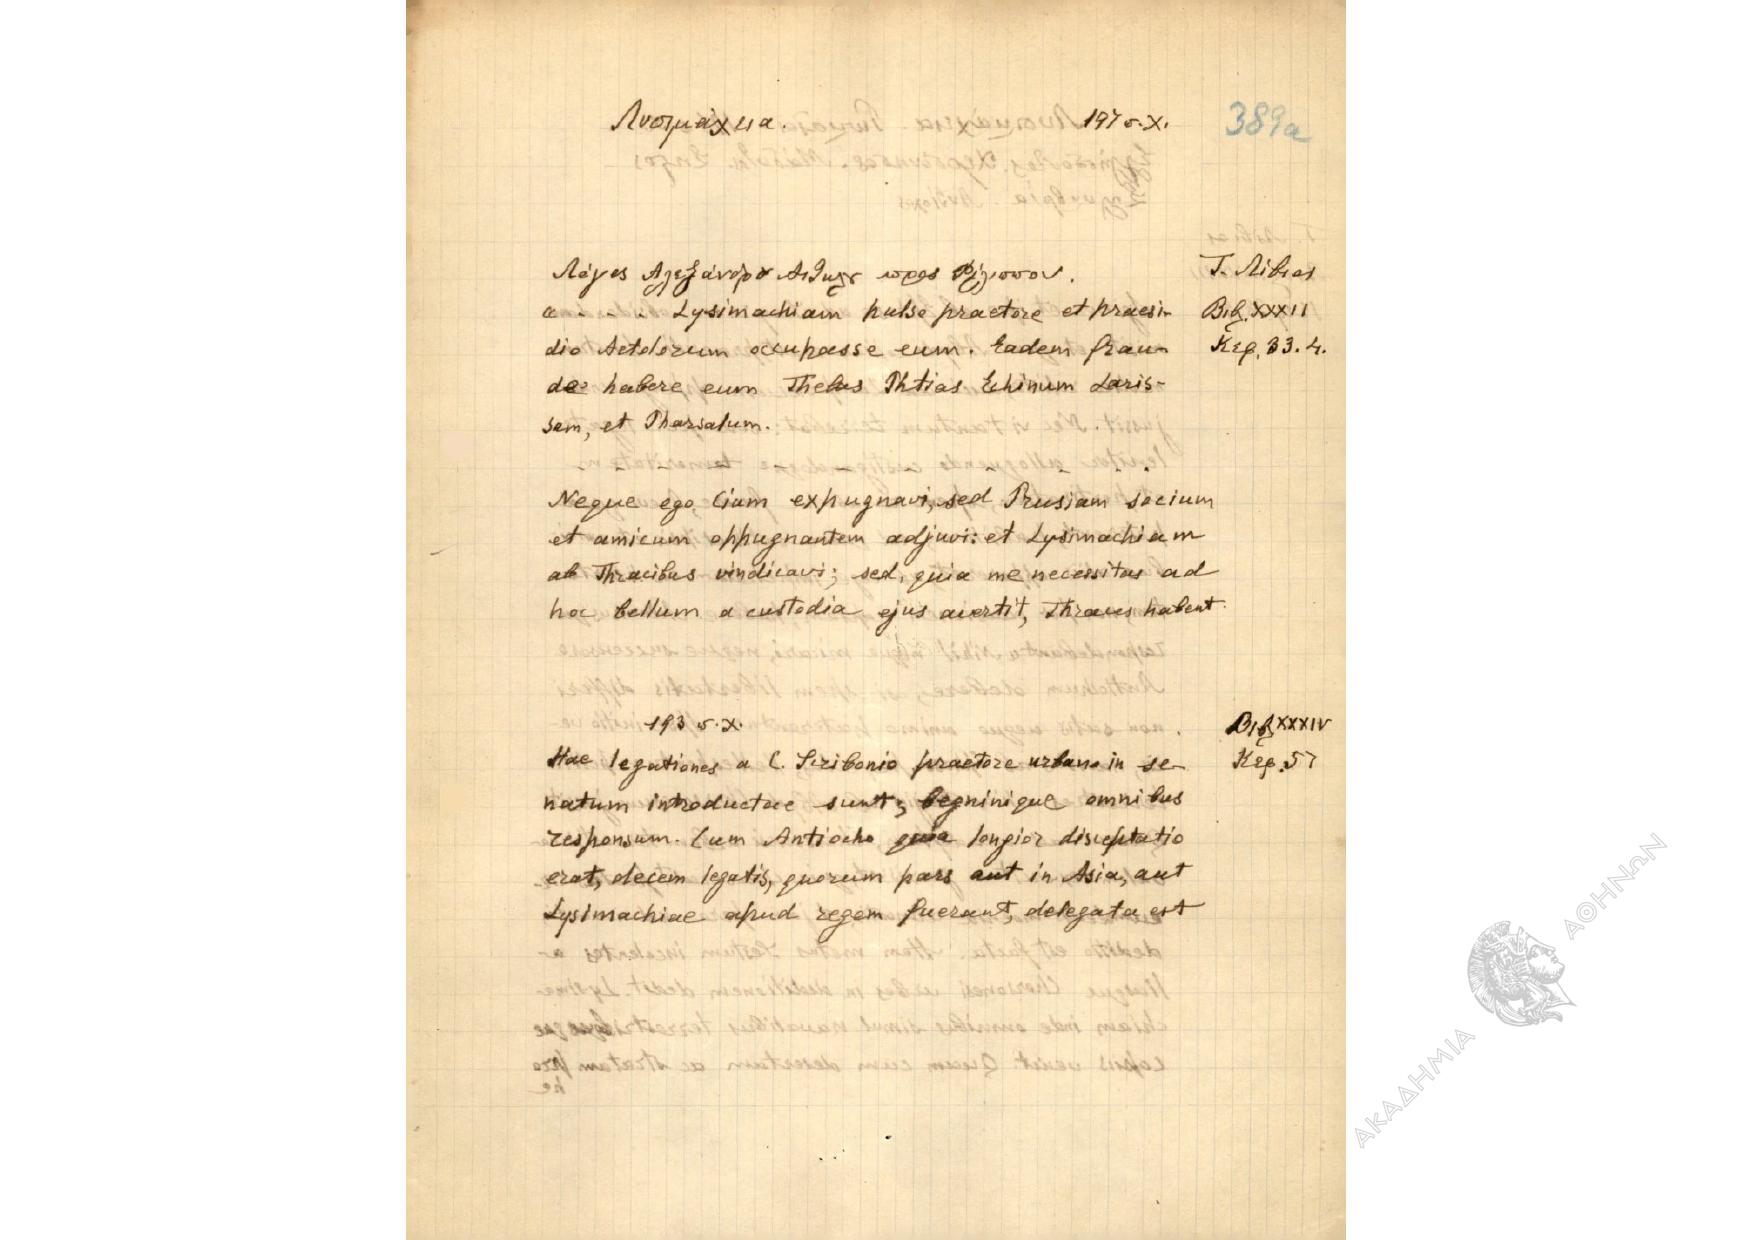 Λυσιμάχεια. 197 π.Χ. 389a
Λόγος Αλεξάνδρου Αιτωλού προς Φίλιππον. Τ. Λίβιος
α - - - Lysimachiam pulso praetore et praesi- Βιβ. XXXII
dio Aetolorum occupasse eum. Eadem frau- Κεφ. 33. 4.
de habere eum Thebas Phtias Echinum Laris-
sam, et Pharsalum.
Neque ego Cium expugnavi, sed Prusiam socium
et amicum oppugnantem adjuvi: et Lysimachiam
ab Thracibus vindicavi; sed, quia me necessitas ad
hoc bellum a custodia ejus avertit, Thraces habent.
193 π.Χ. Βιβ XXXIV
Hae legationes a C. Scribonio praetore urbano in se- Κεφ. 57
natum introductae sunt; begninique omnibus
responsum. Cum Antiocho quia longior disceptatio
erat, decem legatis, quorum pars aut in Asia, aut
Lysimachiae apud regem fuerant, delegata est
ΑΚΑΔΗΜΙΑ ΑΘΗΝΩΝ